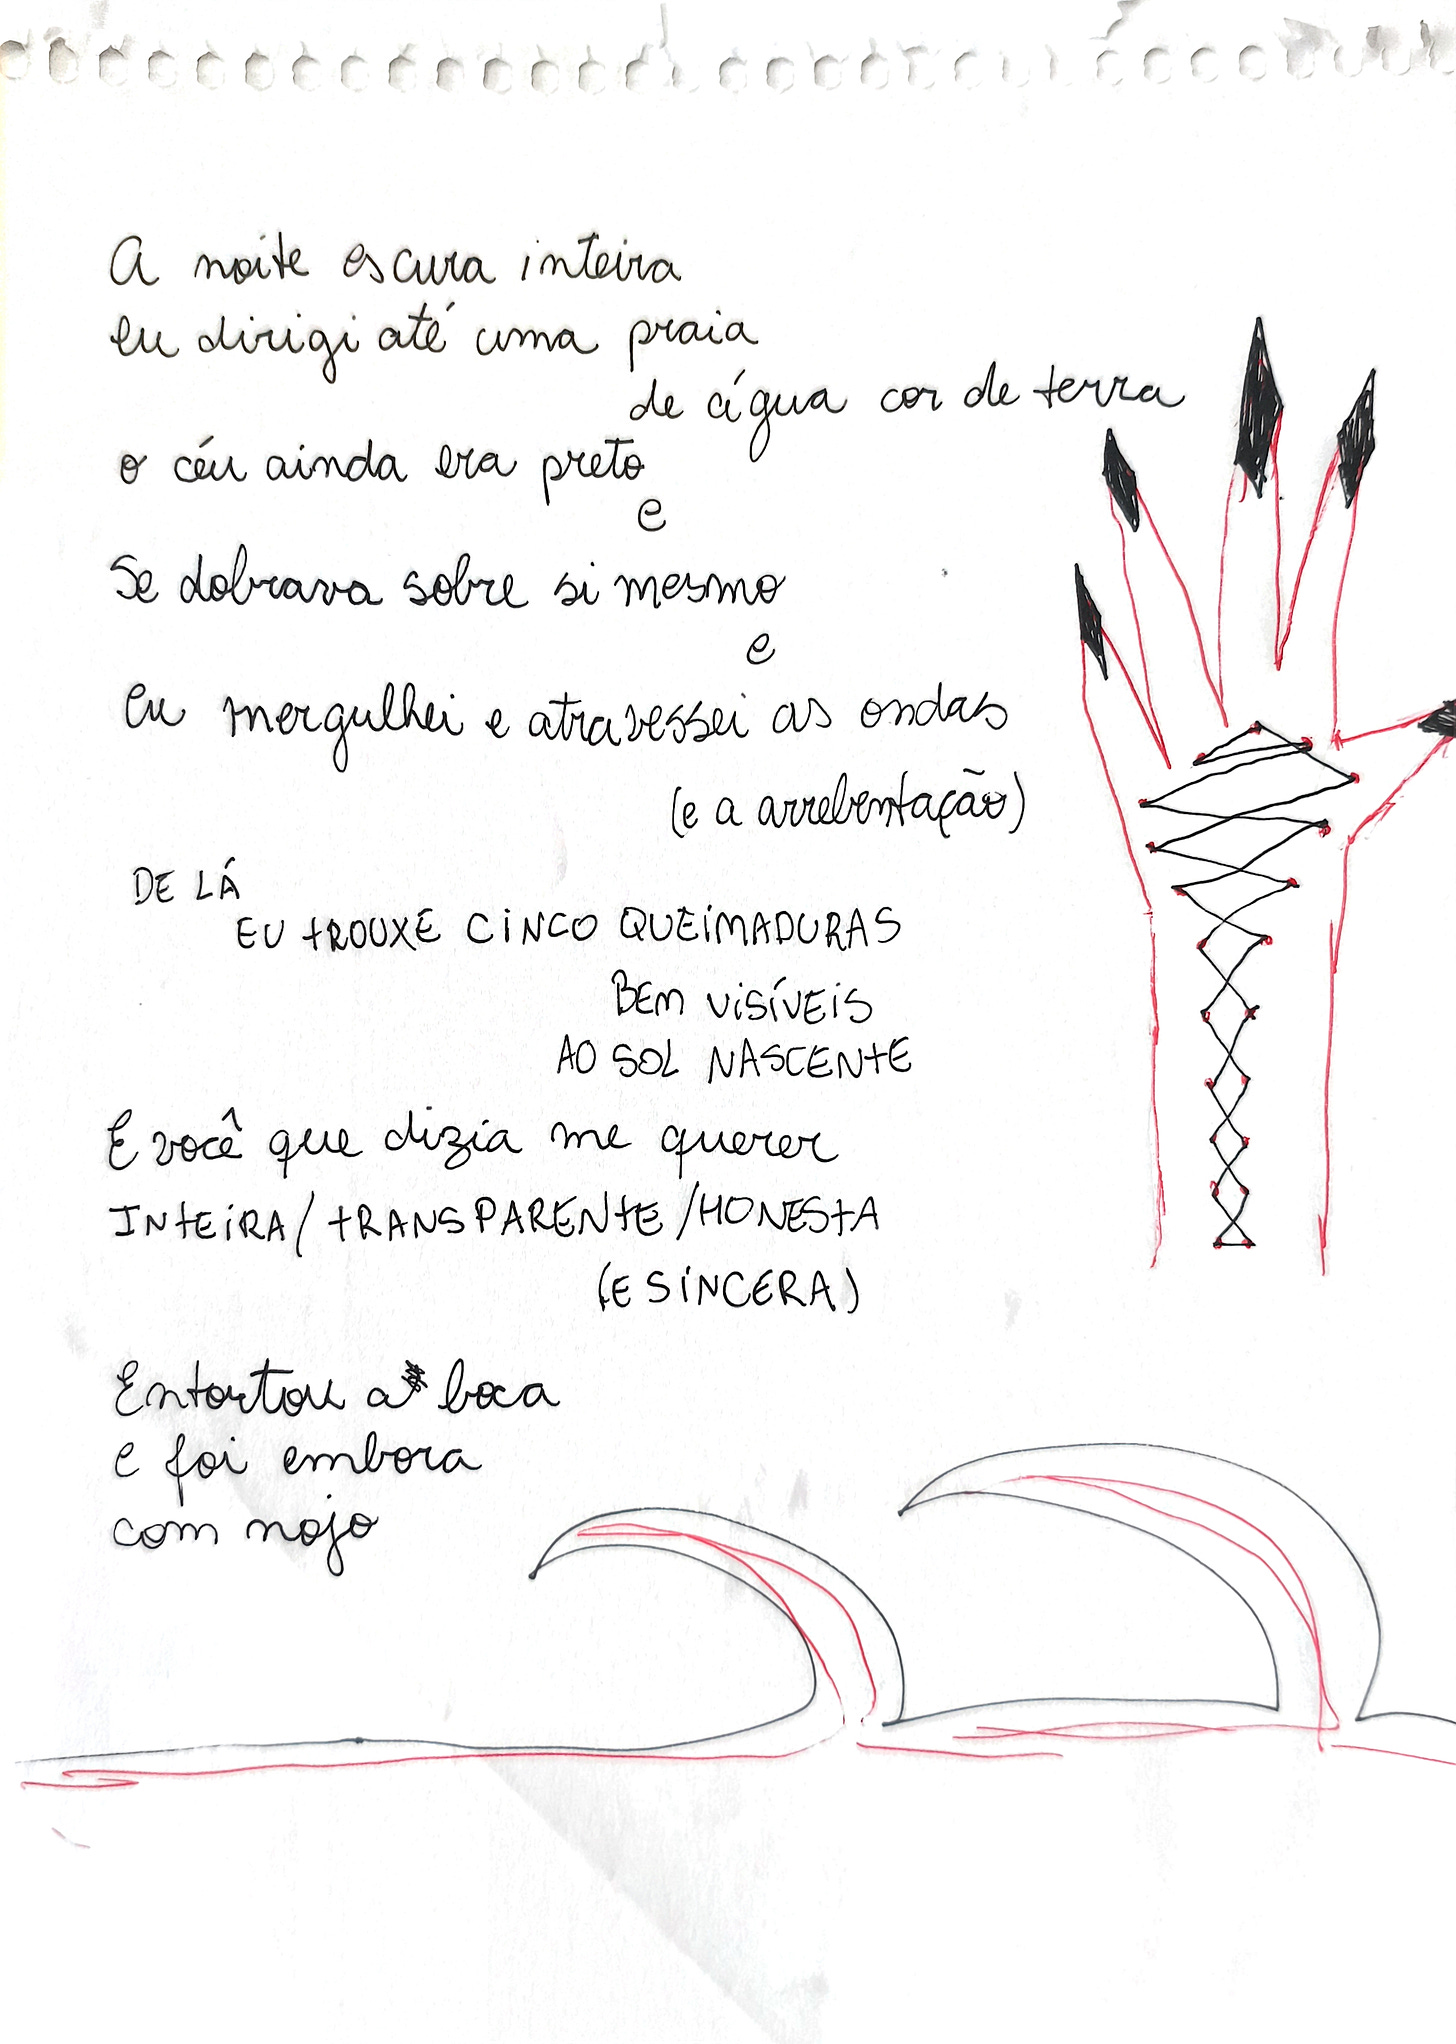 A noite escura inteira
eu dirigi até uma praia
de água cor de terra
o céu ainda era preto
e
Se dobrava sobre si mesmo
e
eu mergulhei e atravessei as ondas
(e a arrebentação)
DE LÁ
EU TROUXE CINCO QUEIMADURAS
BEM VISÍVEIS
AO SOL NASCENTE
E você que dizia me querer
INTEIRA/TRANSPARENTE/HONESTA
(E SINCERA)
Entortou a boca
e foi embora
com nojo